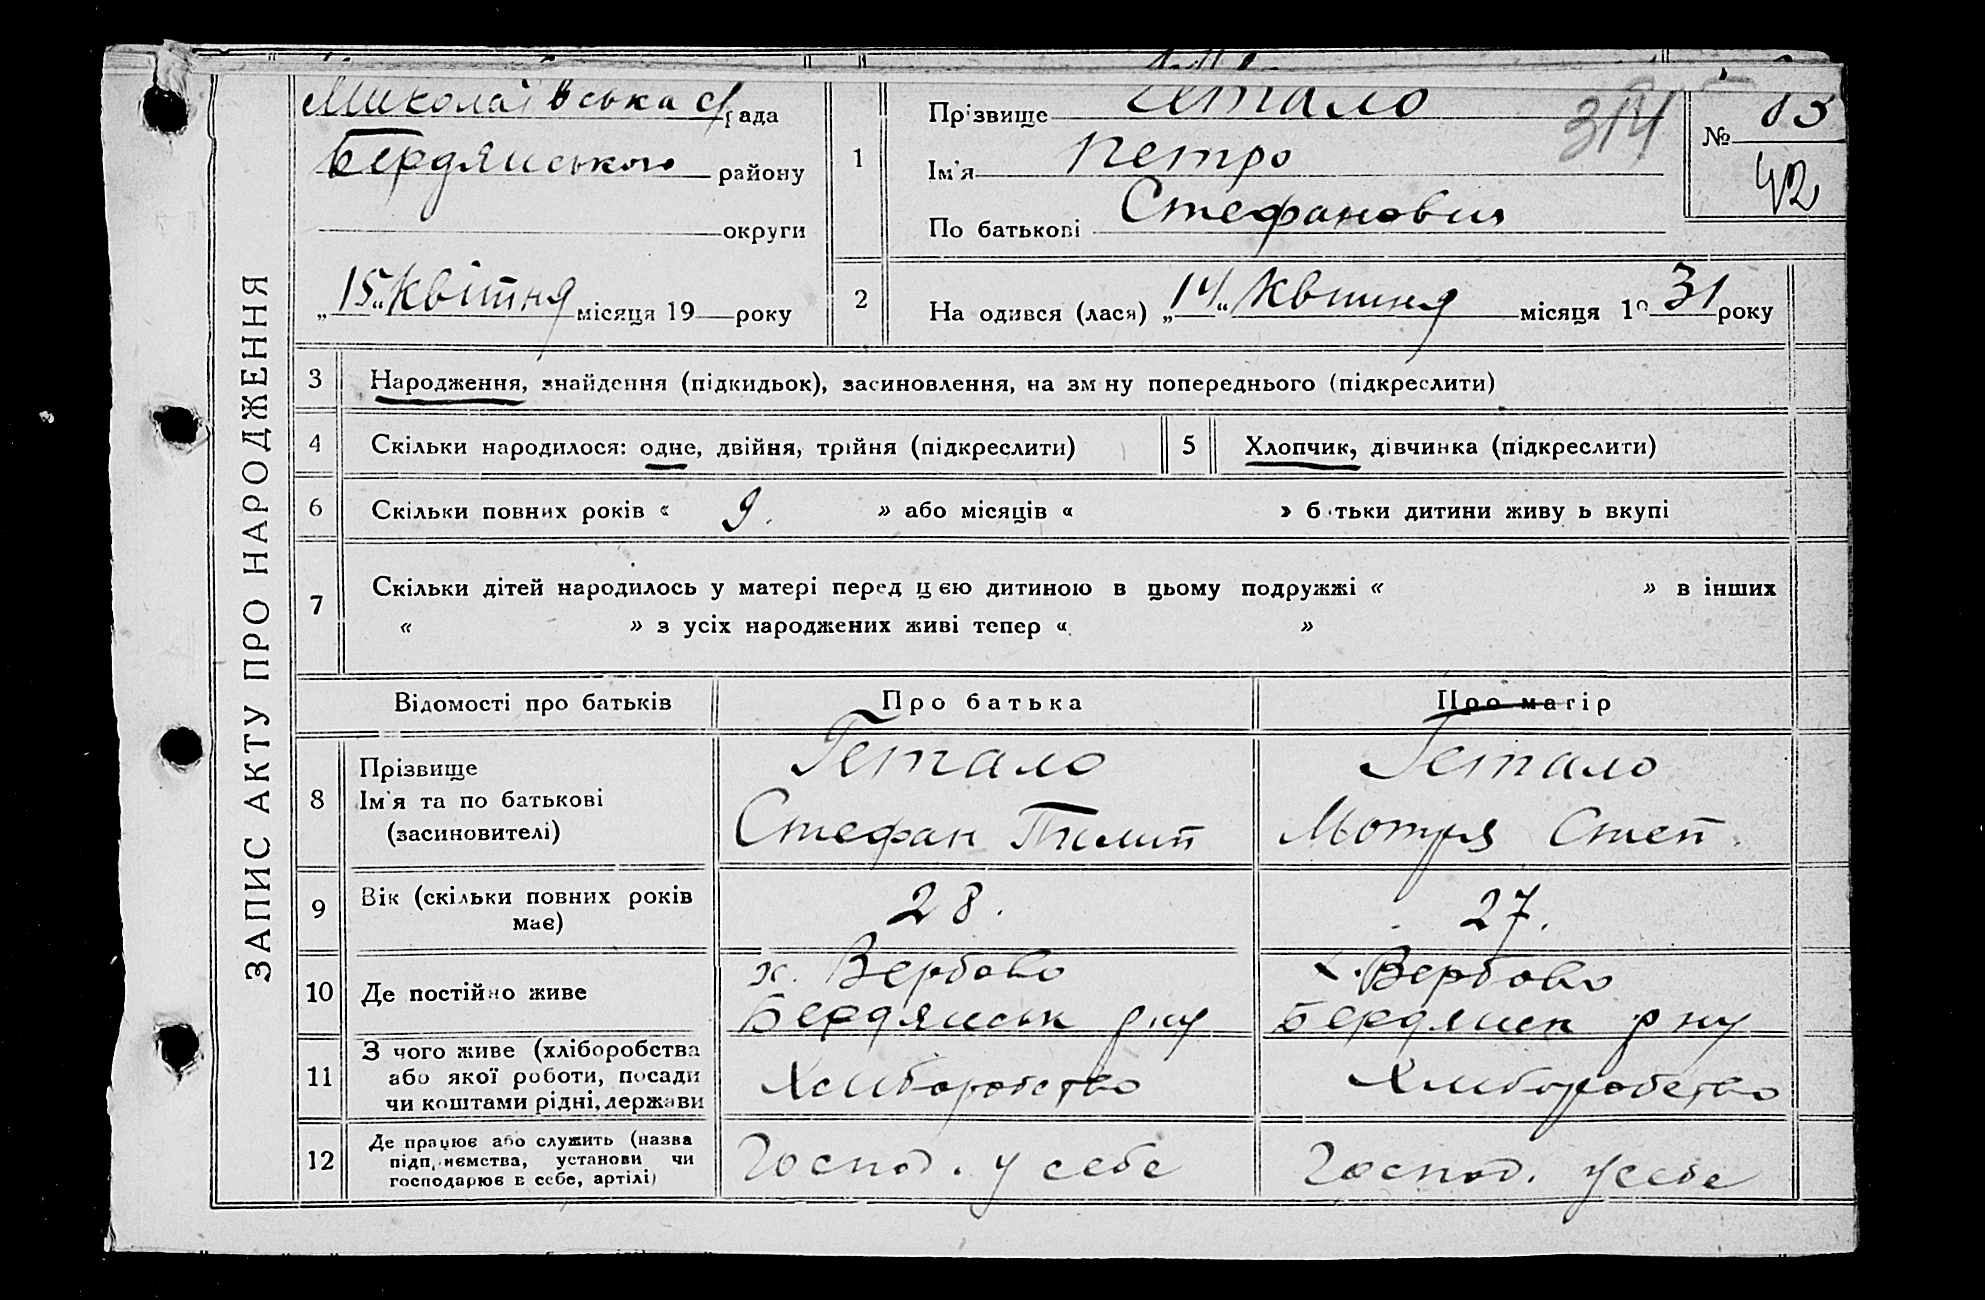 ЗАПИС АКТУ ПРО НАРОДЖЕННЯ
Миколаївська с/рада
Бердянського району
округи
„15“ Квітня місяця 19 року
1
Прізвище Гетало
Ім'я Петро
По батькові Стефанович
314
№ 13
42
2 На одився (лася) „14“ Квітня місяця 19 31 року
3 Народження, знайдення (підкидьок), засиновлення, на зм ну попереднього (підкреслити)
4 Скільки народилося: одне, двійня, трійня (підкреслити)
5 Хлопчик, дівчинка (підкреслити)
6 Скільки повних років « 9. » або місяців « » б тьки дитини живу ь вкупі
7 Скільки дітей народилось у матері перед цією дитиною в цьому подружжі « » в інших
« » з усіх народжених живі тепер « »
Відомості про батьків Про батька Про матір
8 Прізвище
Ім'я та по батькові
(засиновителі)
Гетало
Стефан Пилип
Гетало
Мотря Степ.
9 Вік (скільки повних років
має)
28.
27.
10 Де постійно живе
х. Вербово
Бердянськ р-ну
х. Вербово
Бердянск р ну
11 З чого живе (хліборобства
або якої роботи, посади
чи коштами рідні, держави
Хлиборобство
Хлиборобство
12 Де працює або служить (назва
підприємства, установи чи
господарює в себе, артілі)
Господ. у себе
Господ. у себе